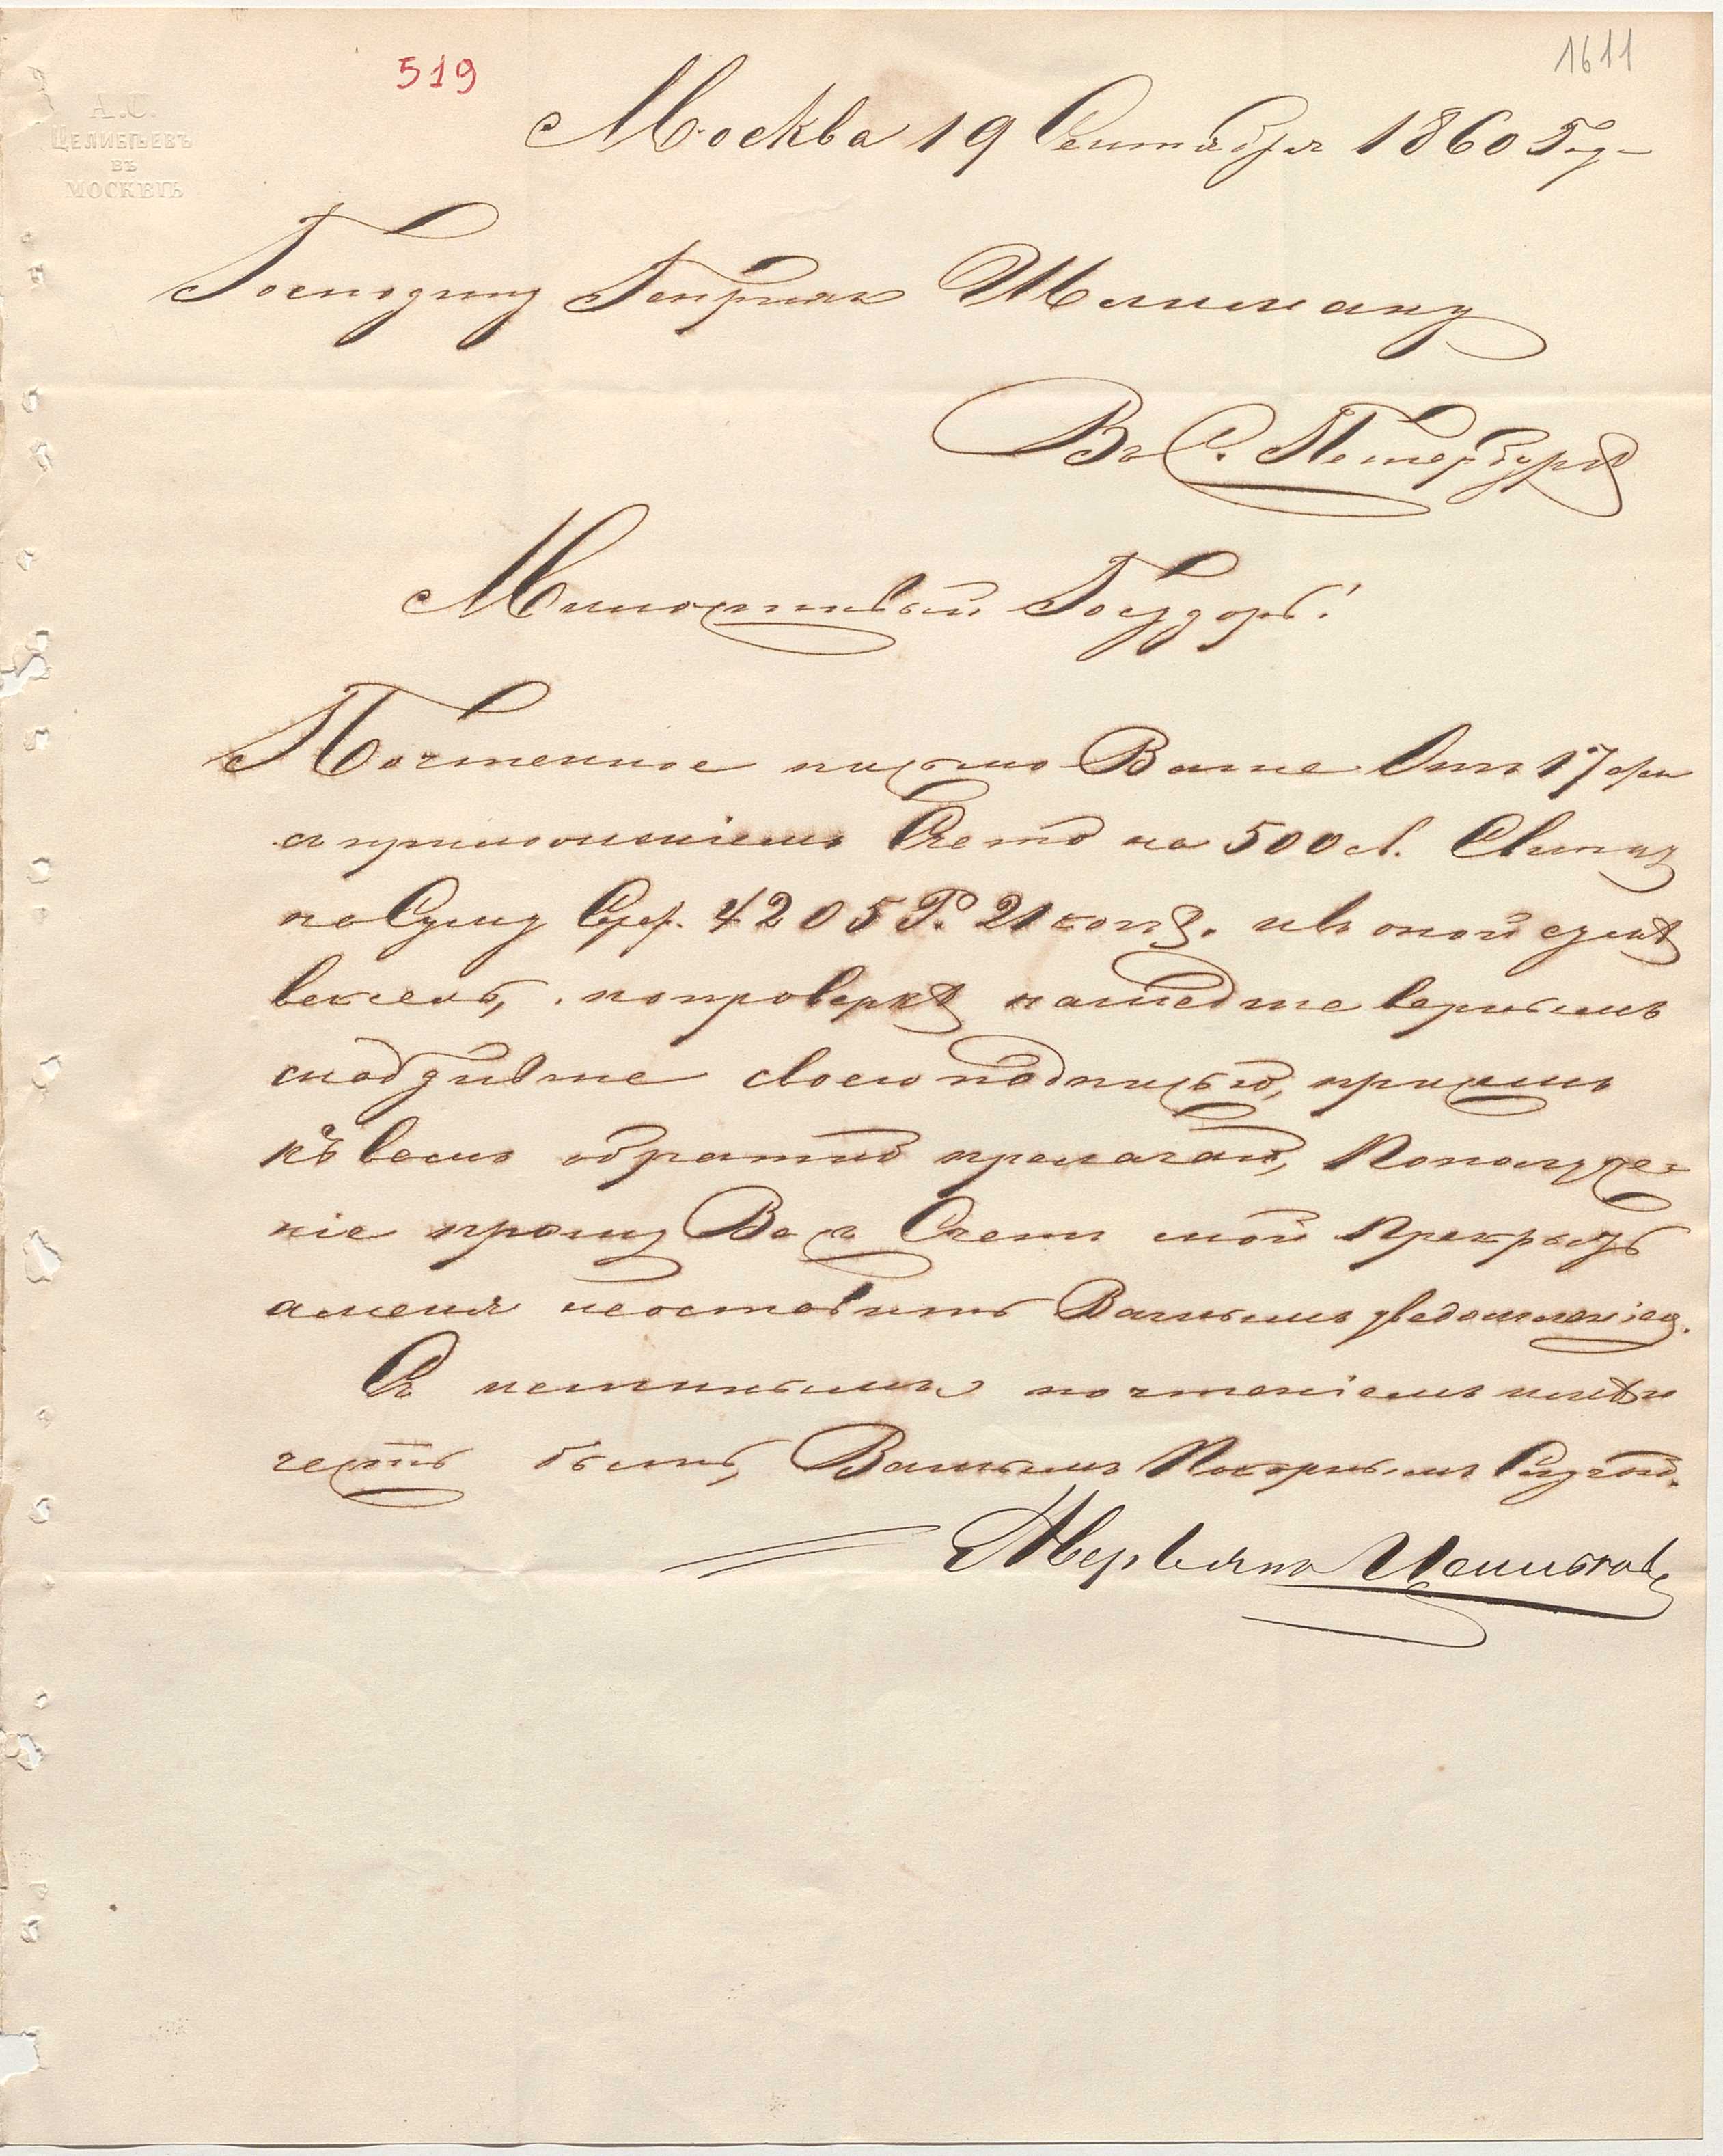 519
1611
А.С.
ЦЕЛИБѢЕВЪ
ВЪ
МОСКВѢ
Москва 19 Сентября 1860 Год
Господину Генриху Шлиману
Въ С. Петербургѣ
Милостивый Государь!
Почтенное письмо Ваше Отъ 17 сего
съ приложеніемъ Счета на 500 Свинцу
на Сумму Сереб. 4205 Р. 21 коп. и въ оной суммѣ
вексель, по проверкѣ нашедше вернымъ
снабдивше своею подписью, при семъ
къ вамъ обратно прилагаю, По получе=
ніе прошу Васъ Счетъ мой Прекрыть
а меня неоставить Вашимъ уведомленіем.
Съ истиннымъ почтеніемъ имѣю
честь быть, Вашимъ Покорнымъ Слугою.